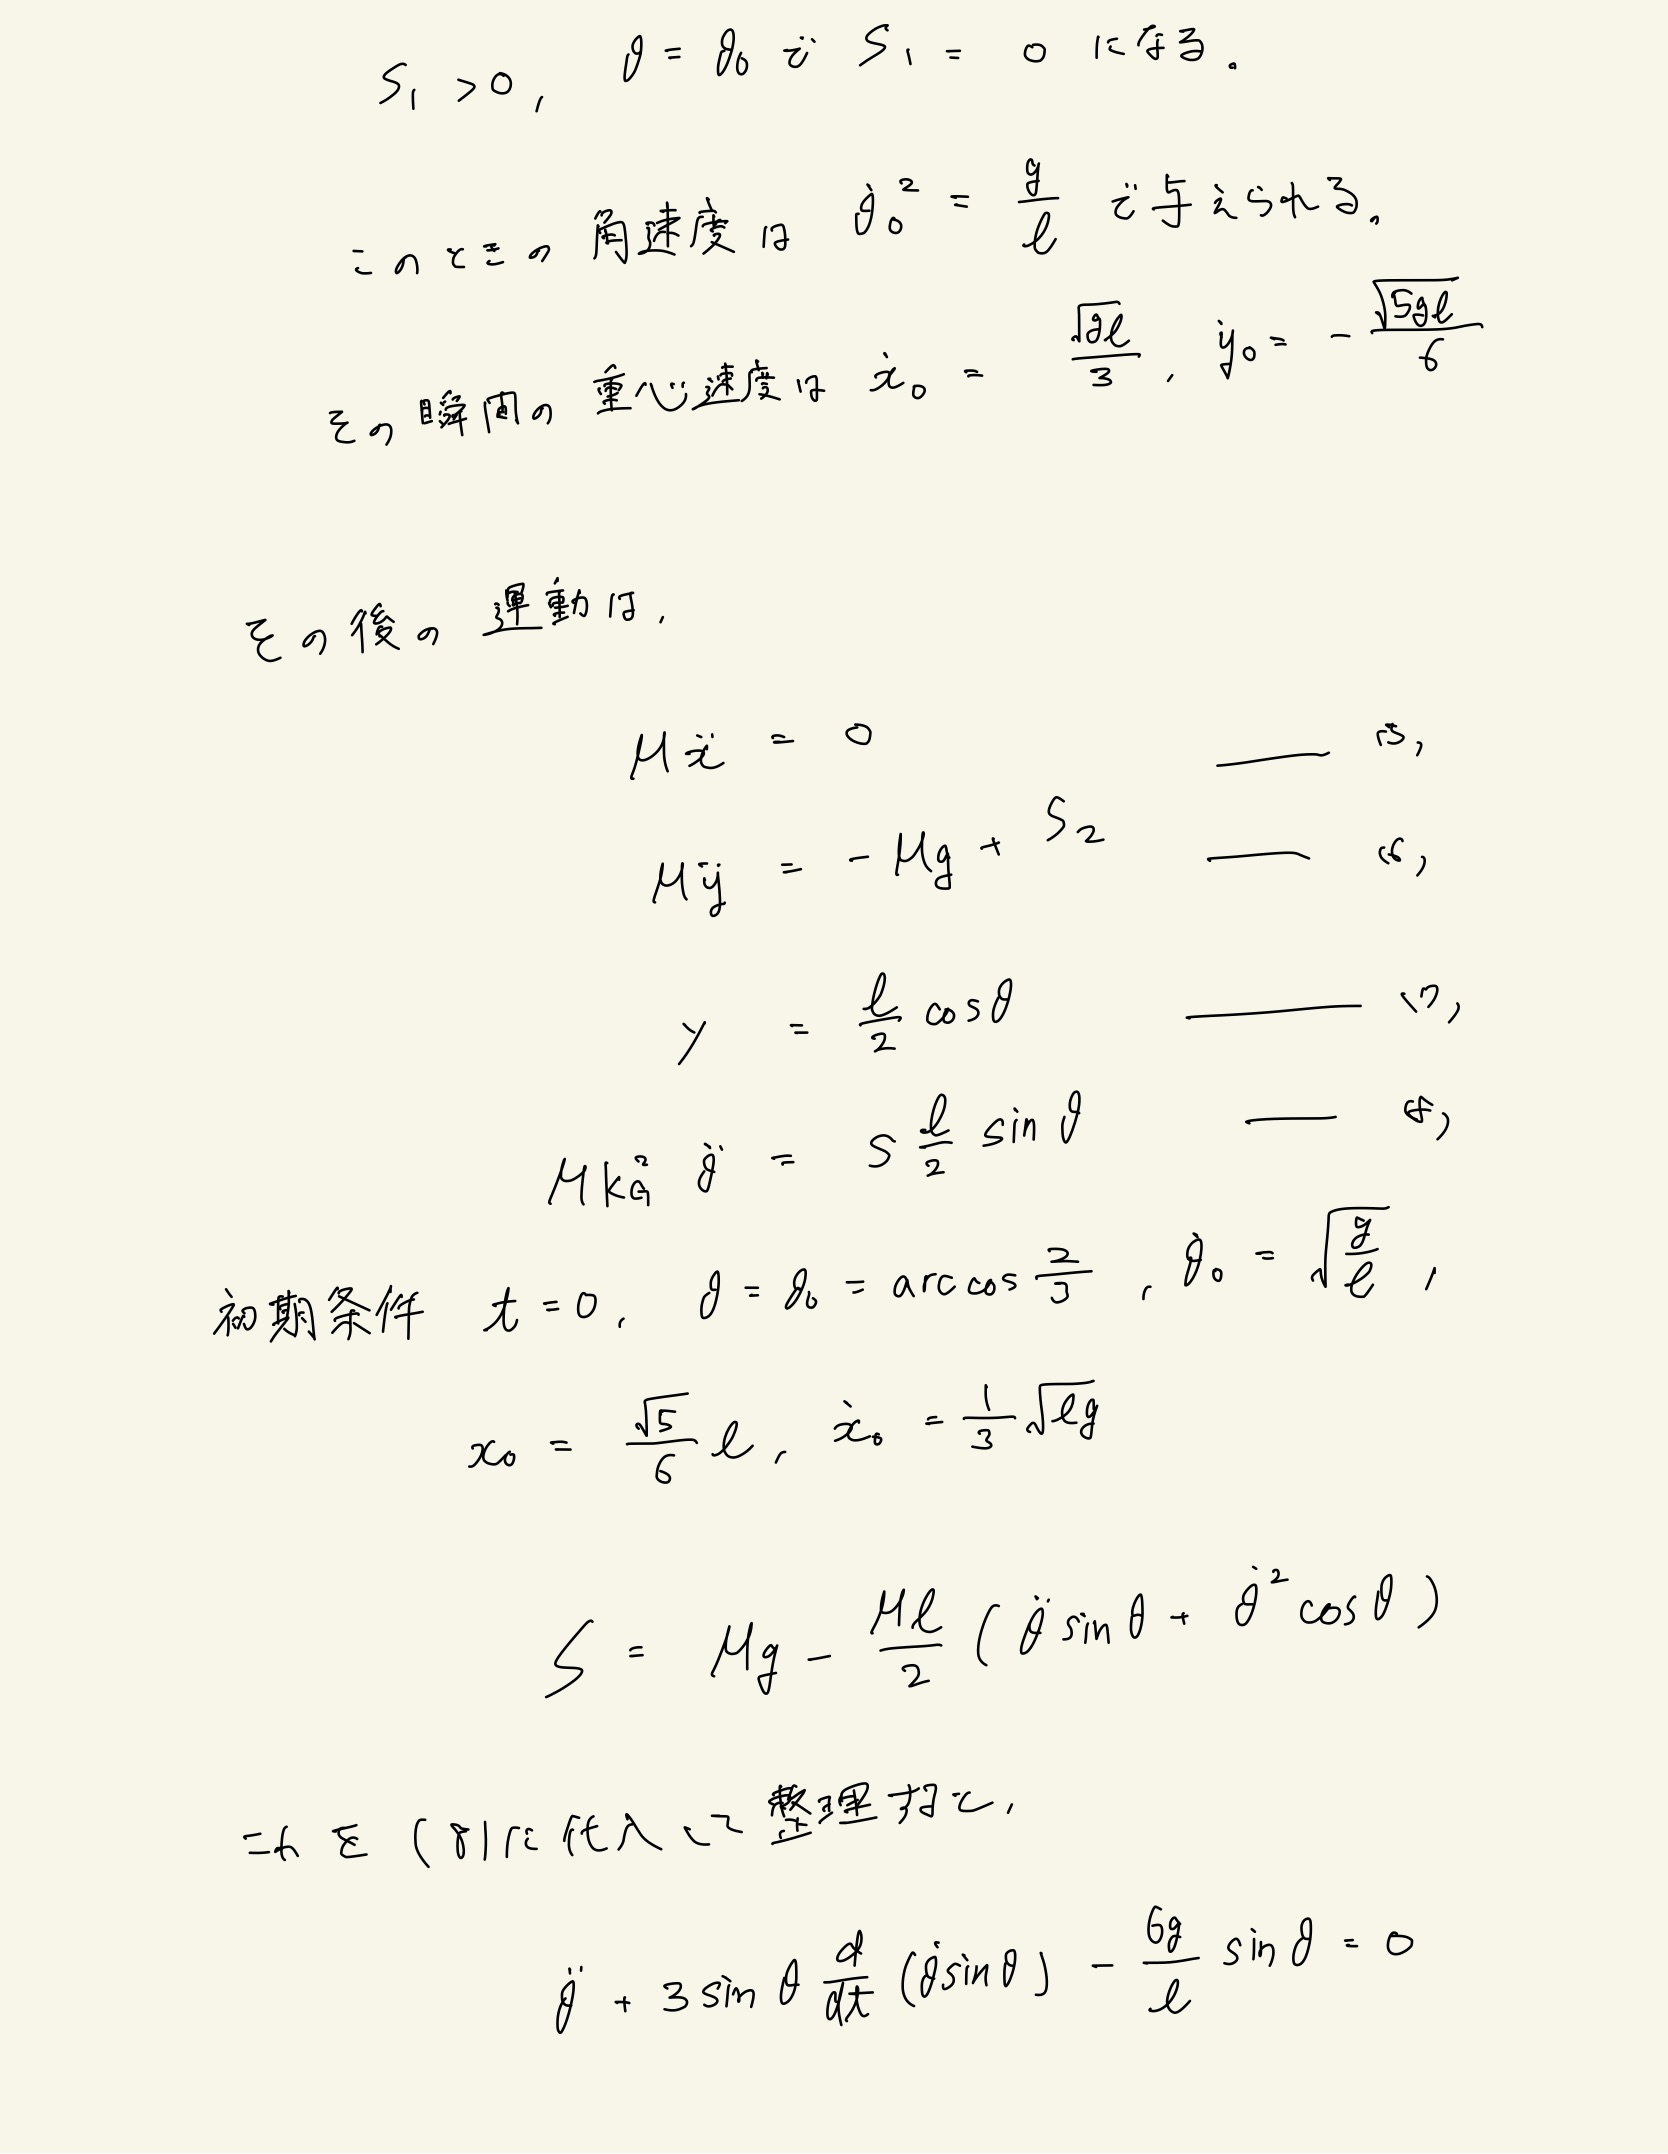 S₁ > 0, θ = θ₀ で S₁ = 0 になる.
このときの 角速度は θ̇₀² = g/l で与えられる.
その瞬間の 重心速度は ẋ₀ = √(gl)/3, ẏ₀ = - √(5gl)/6
その後の 運動は,
Mẍ = 0 —— (5)
Mÿ = - Mg + S₂ —— (6)
y = l/2 cosθ —— (7)
Mk_G² θ̈ = S l/2 sin θ —— (8)
初期条件 t = 0, θ = θ₀ = arc cos 2/3, θ̇₀ = √(g/l),
x₀ = √5/6 l, ẋ₀ = 1/3 √(lg)
S = Mg - Ml/2 (θ̈ sin θ + θ̇² cos θ)
これを (8)に代入して整理すると,
θ̈ + 3 sin θ d/dt (θ̇ sin θ) - 6g/l sin θ = 0